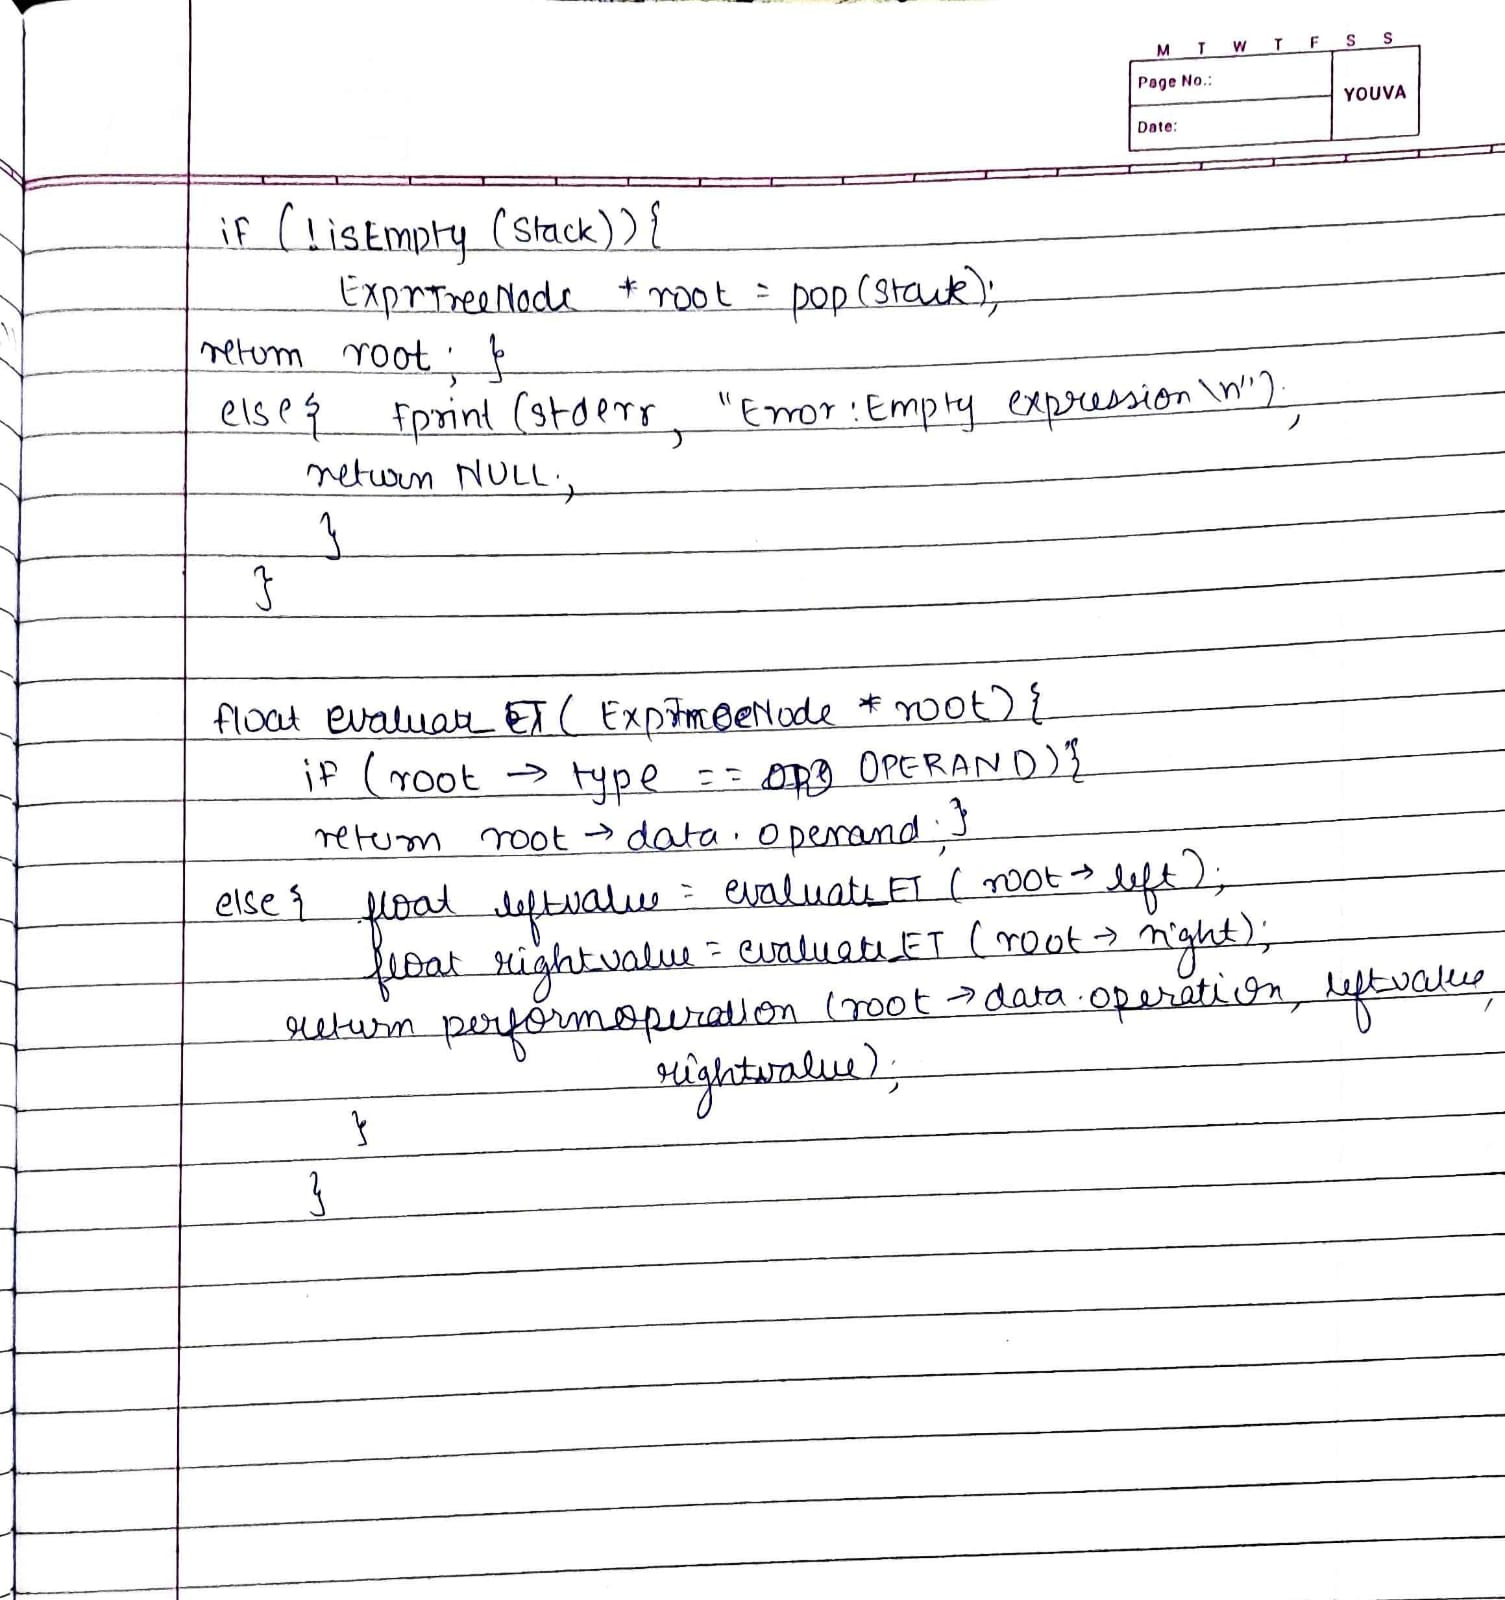 M T W T F S S
Page No.:
YOUVA
Date:
if (!isEmpty (Stack)){
ExprTreeNode *root = pop(Stack);
return root; }
else{ fprint (stderr, "Error: Empty expression\n");
return NULL;
}
}
float evaluate_ET( ExprTreeNode *root){
if (root → type == OPERAND){
return root → data.operand;}
else{ float leftvalue = evaluate_ET (root → left);
float rightvalue = evaluate_ET (root → right);
return performoperation (root → data.operation, leftvalue,
rightvalue);
}
}